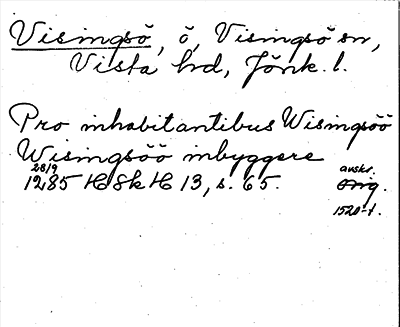 Visingsö, ö, Visingsö sn,
Vista hd, Jönk. l.
Pro inhabitantibus Wisingsöö
Wisingsöö inbyggere
28/9 avskr.
1285 HSkH 13, s. 65. orig.
1520-t.